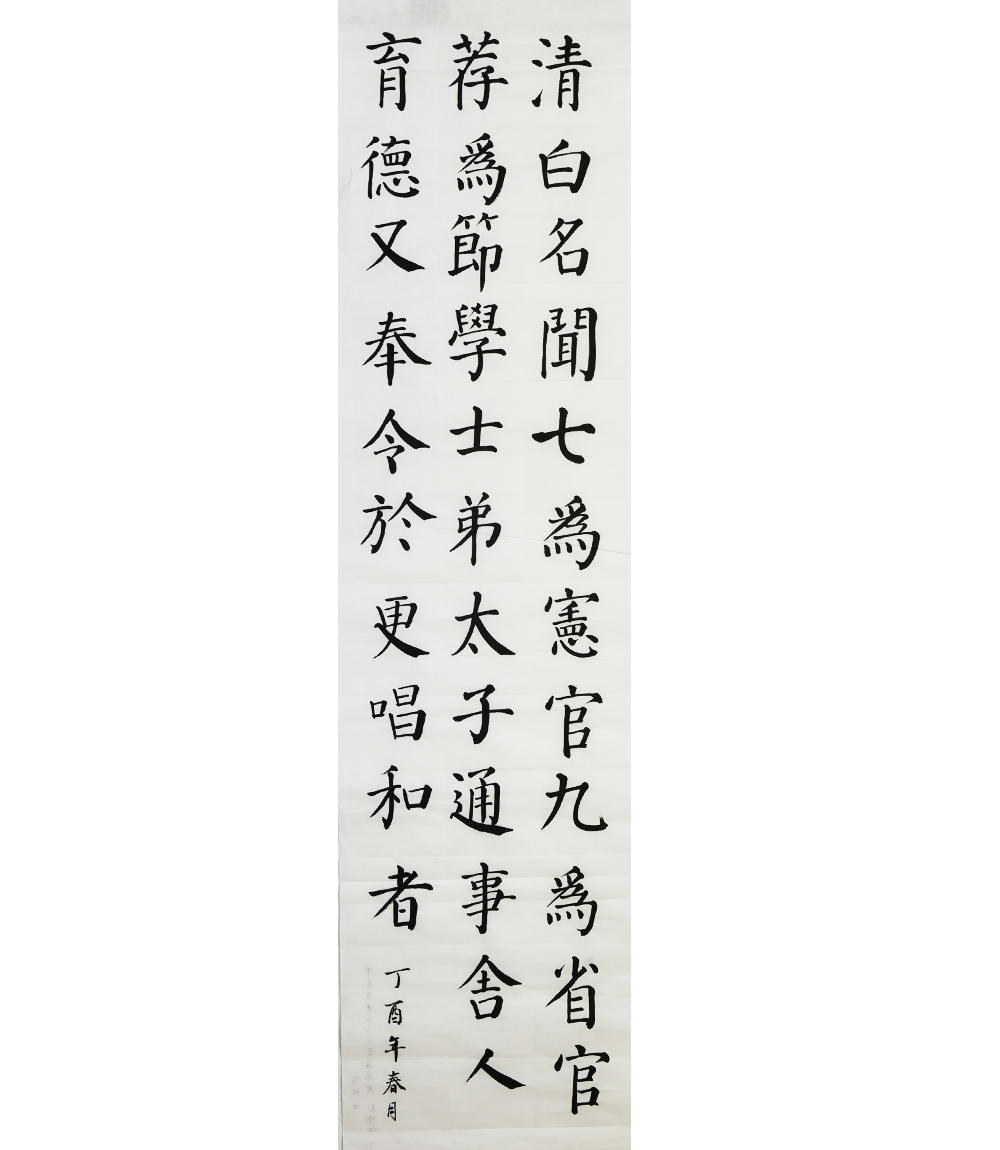 清白名聞七為憲官九為省官
荐為節學士弟太子通事舍人
育德又奉令於更唱和者
丁酉年春月